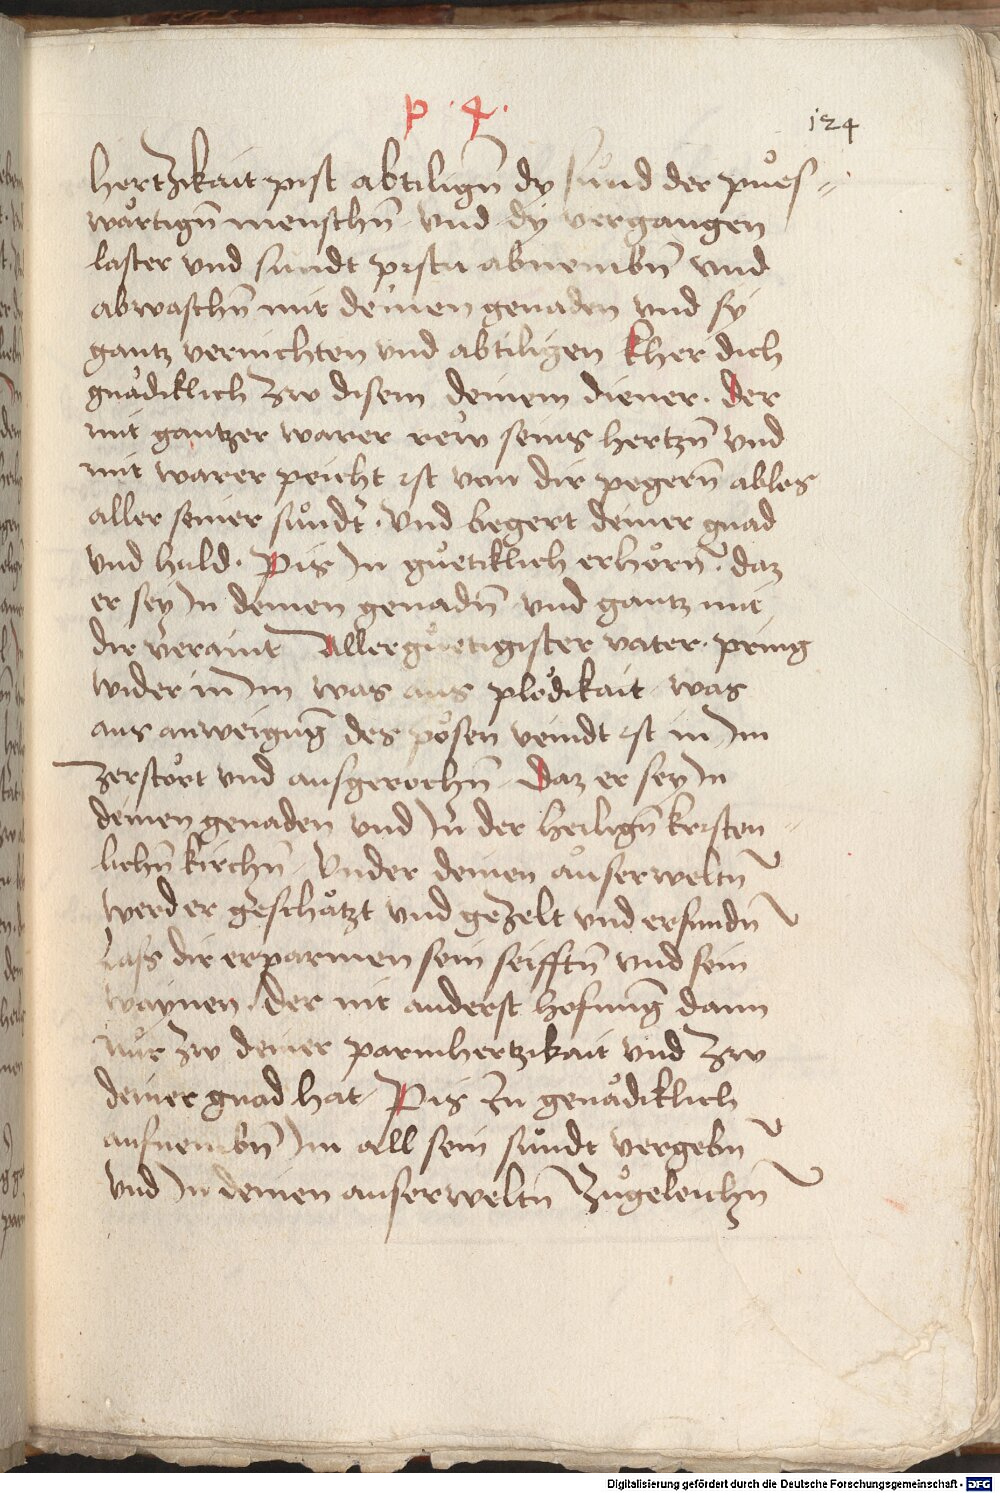 p . 4 .
124
hertzikait pist abtiligñ dy sůnd der půes=
wårtigñ menschñ vnd dy vergangen
laster vnd sundt pistu abnembñ vnd
abwaschñ mit deinen genaden vnd sy
gantz vernichten vnd abtiligen kher dich
gnådiklich zw disem deinem diener. der
mit gantzer warer rew seins hertzñ vnd
mit warer peicht ist von dir pegerñ ablas
aller seiner sůndt. vnd begert deiner gnad
vnd huld. Pis In gůetiklich erhörñ. daz
er sey In deinen genadñ vnd gantz mit
dir veraint Allergůetigister vater. pring
wider in Im was aus plödikait was
aus anweigug̃ des pösen veindt ist in Im
zerstört vnd ausgerochñ. Daz er sey In
deinen genaden vnd In der heiligñ kristen=
lichñ kirchñ. Vnder deinen auserweltñ
werd er geschåtzt vnd gezelt vnd erfundñ
lass dir erparmen sein seifftñ vnd sein
waynen. der nit anderst hofnung̃ dann
nur zw deiner parmhertzikait vnd zw
deiner gnad hat Pis In genådiklich
aufnembñ Im all sein sůndt vergebñ
vnd In deinen auserweltñ zůgeleichñ
Digitalisierung gefördert durch die Deutsche Forschungsgemeinschaft - DFG